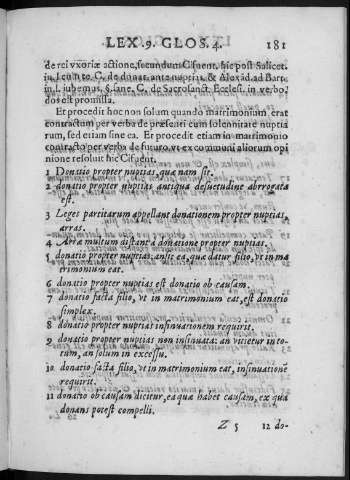 LEX .9. GLOS. 4. 181
de rei vxoriæ actione, secundum Cifuent. hic post Salicet.
in l. cum te. C. de donat. ante nuptias. & Alexád. ad Bart.
in l. iubemus. §. sane. C. de Sacrosanct. Ecclesi. in verbo.
dos est promissa.
Et procedit hoc non solum quando matrimonium erat
contractum per verba de præsenti cum solemnitate nuptia
rum, sed etiam sine ea. Et procedit etiam in matrimonio
contracto per verba de futuro, vt ex communi aliorum opi
nione resoluit hic Cifuent.
1 Donatio propter nuptias, quæ nam sit.
2 donatio propter nuptias antiqua desuetudine abrrogata
est.
3 Leges partitarum appellant donationem propter nuptias,
arras.
4 Arræ multum distant à donatione propter nuptias.
5 donatio propter nuptias, an sit ea, quæ datur filio, vt in ma
trimonium eat.
6 donatio propter nuptias est donatio ob causam.
7 donatio facta filio, vt in matrimonium eat, est donatio
simplex.
8 donatio propter nuptias insinuationem requirit.
9 donatio propter nuptias non insinuata: an vitietur in to-
tum, an solum in excessu.
10 donatio facta filio, vt in matrimonium eat, insinuatione
requirit.
11 donatio ob causam dicitur, ea quæ habet causam, ex qua
donans potest compelli.
Z 5 12 do-